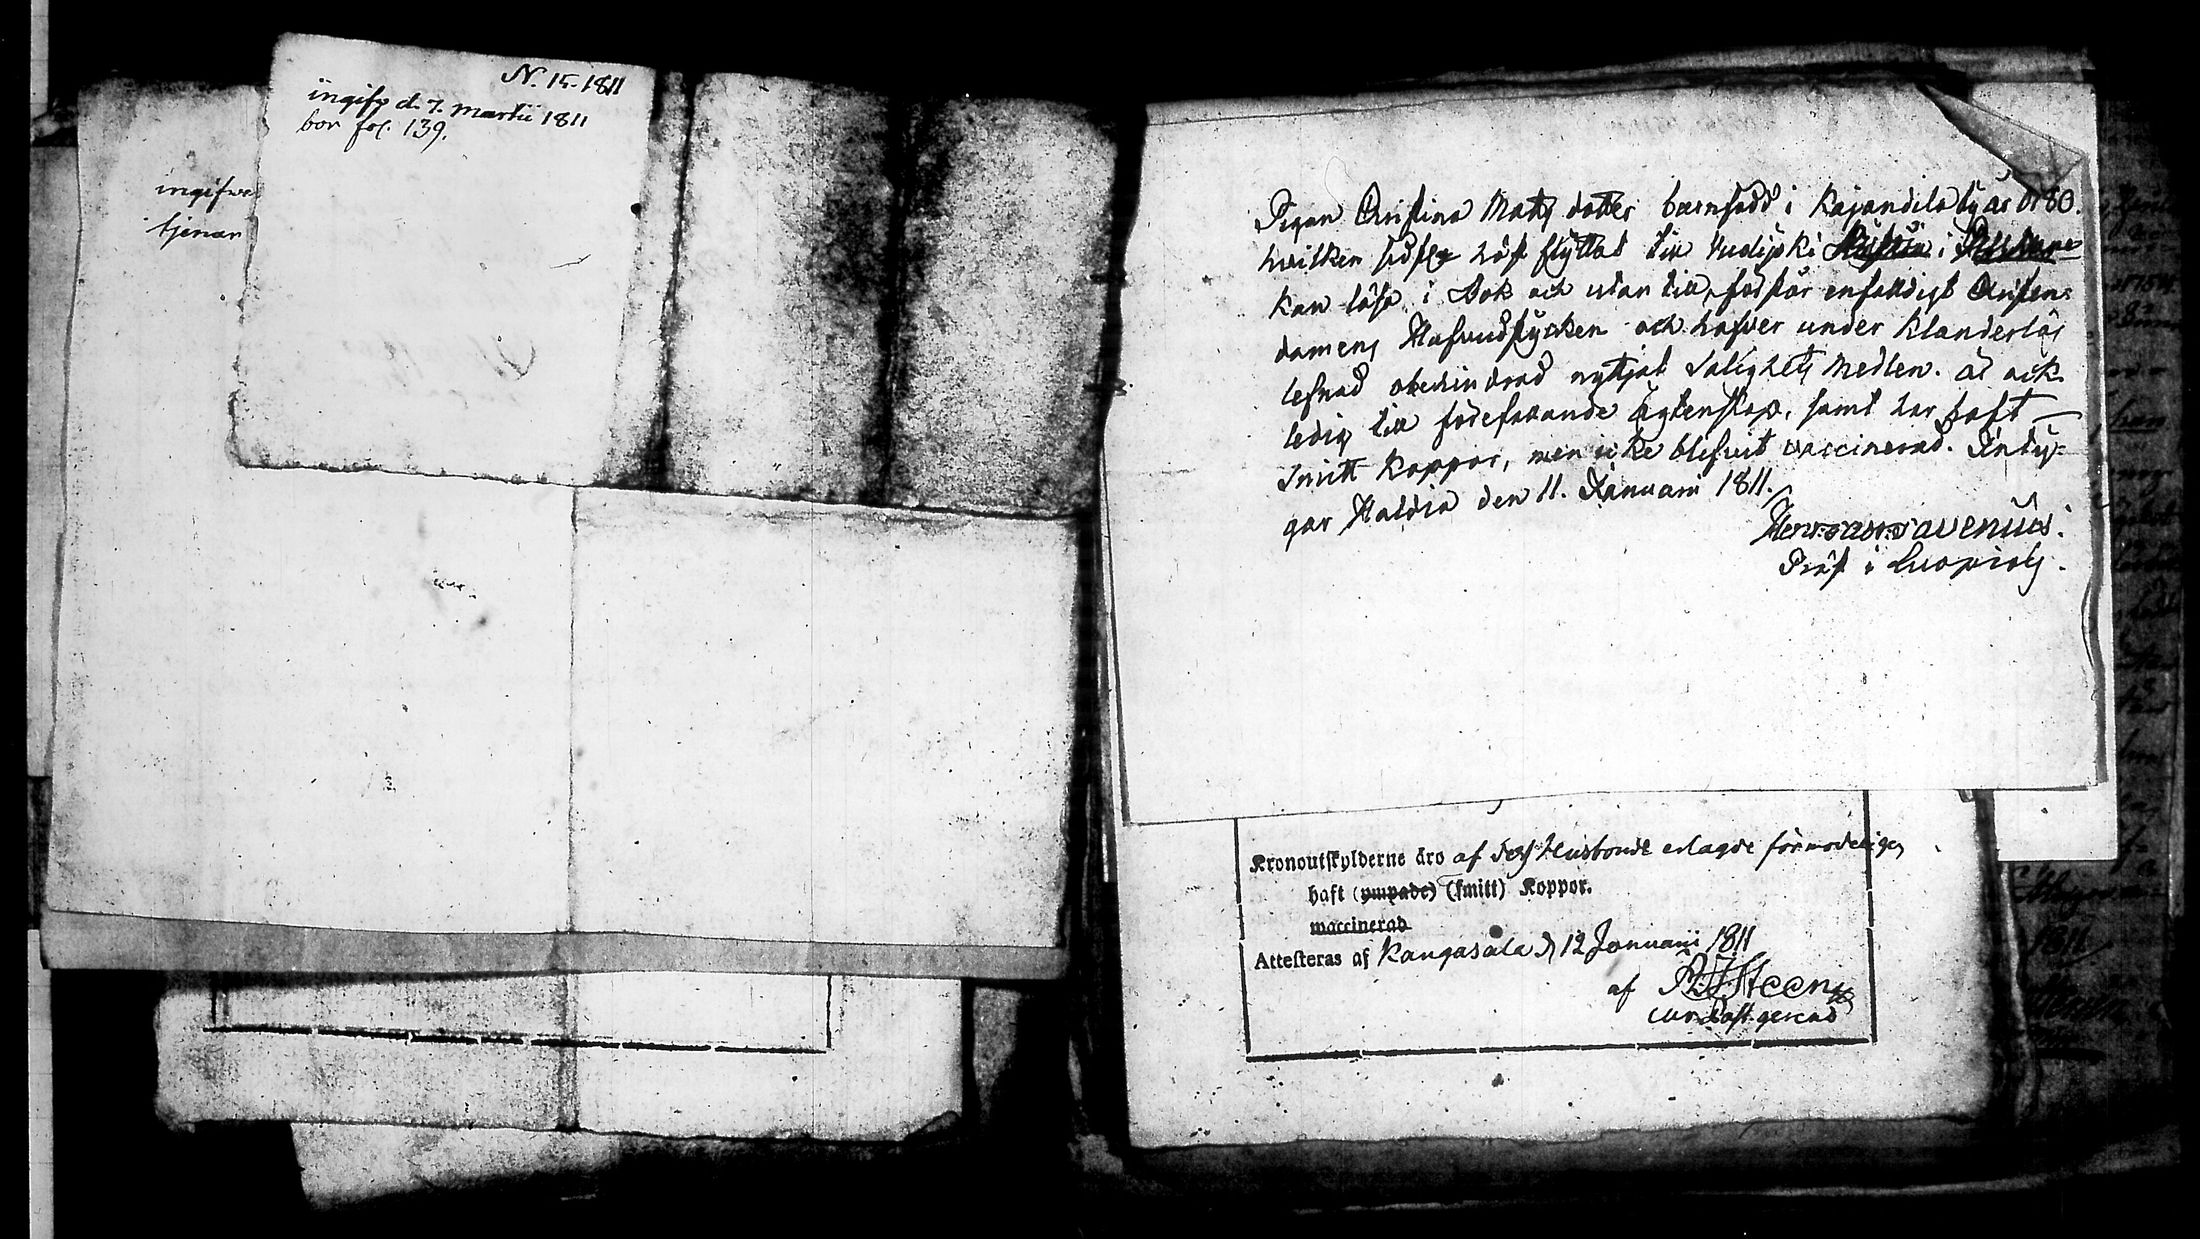 N. 15. 1811
ingifv. d. 7. Martii 1811
bor fol. 139.
ingifven
tjenar
Pigan Christina Matts dotter barnfödd i Kajandila by år 1780.
hvilken sidstl. höst flyttat till Kudiski i
kan läsa i Bok och utan till, förstår enfaldigt Christen-
domens Hufvudstycken och hafver under klanderlös
lefnad obehindrad nyttjat Salighets Medlen. är ock
ledig till förefallande Ägtenskap, samt har haft
Smitt koppor, men icke blifvit vaccinerad. Inty-
gar Haldia den 11. Januarii 1811.
avenius.
Präst i Luopiois.
Kronoutskylderne äro af dess Husbonde erlagde förmodeligen
haft (ympade) (smitt) Koppor.
waccinerad
Attesteras af Kangasala d. 12 Januarii 1811
af Steen